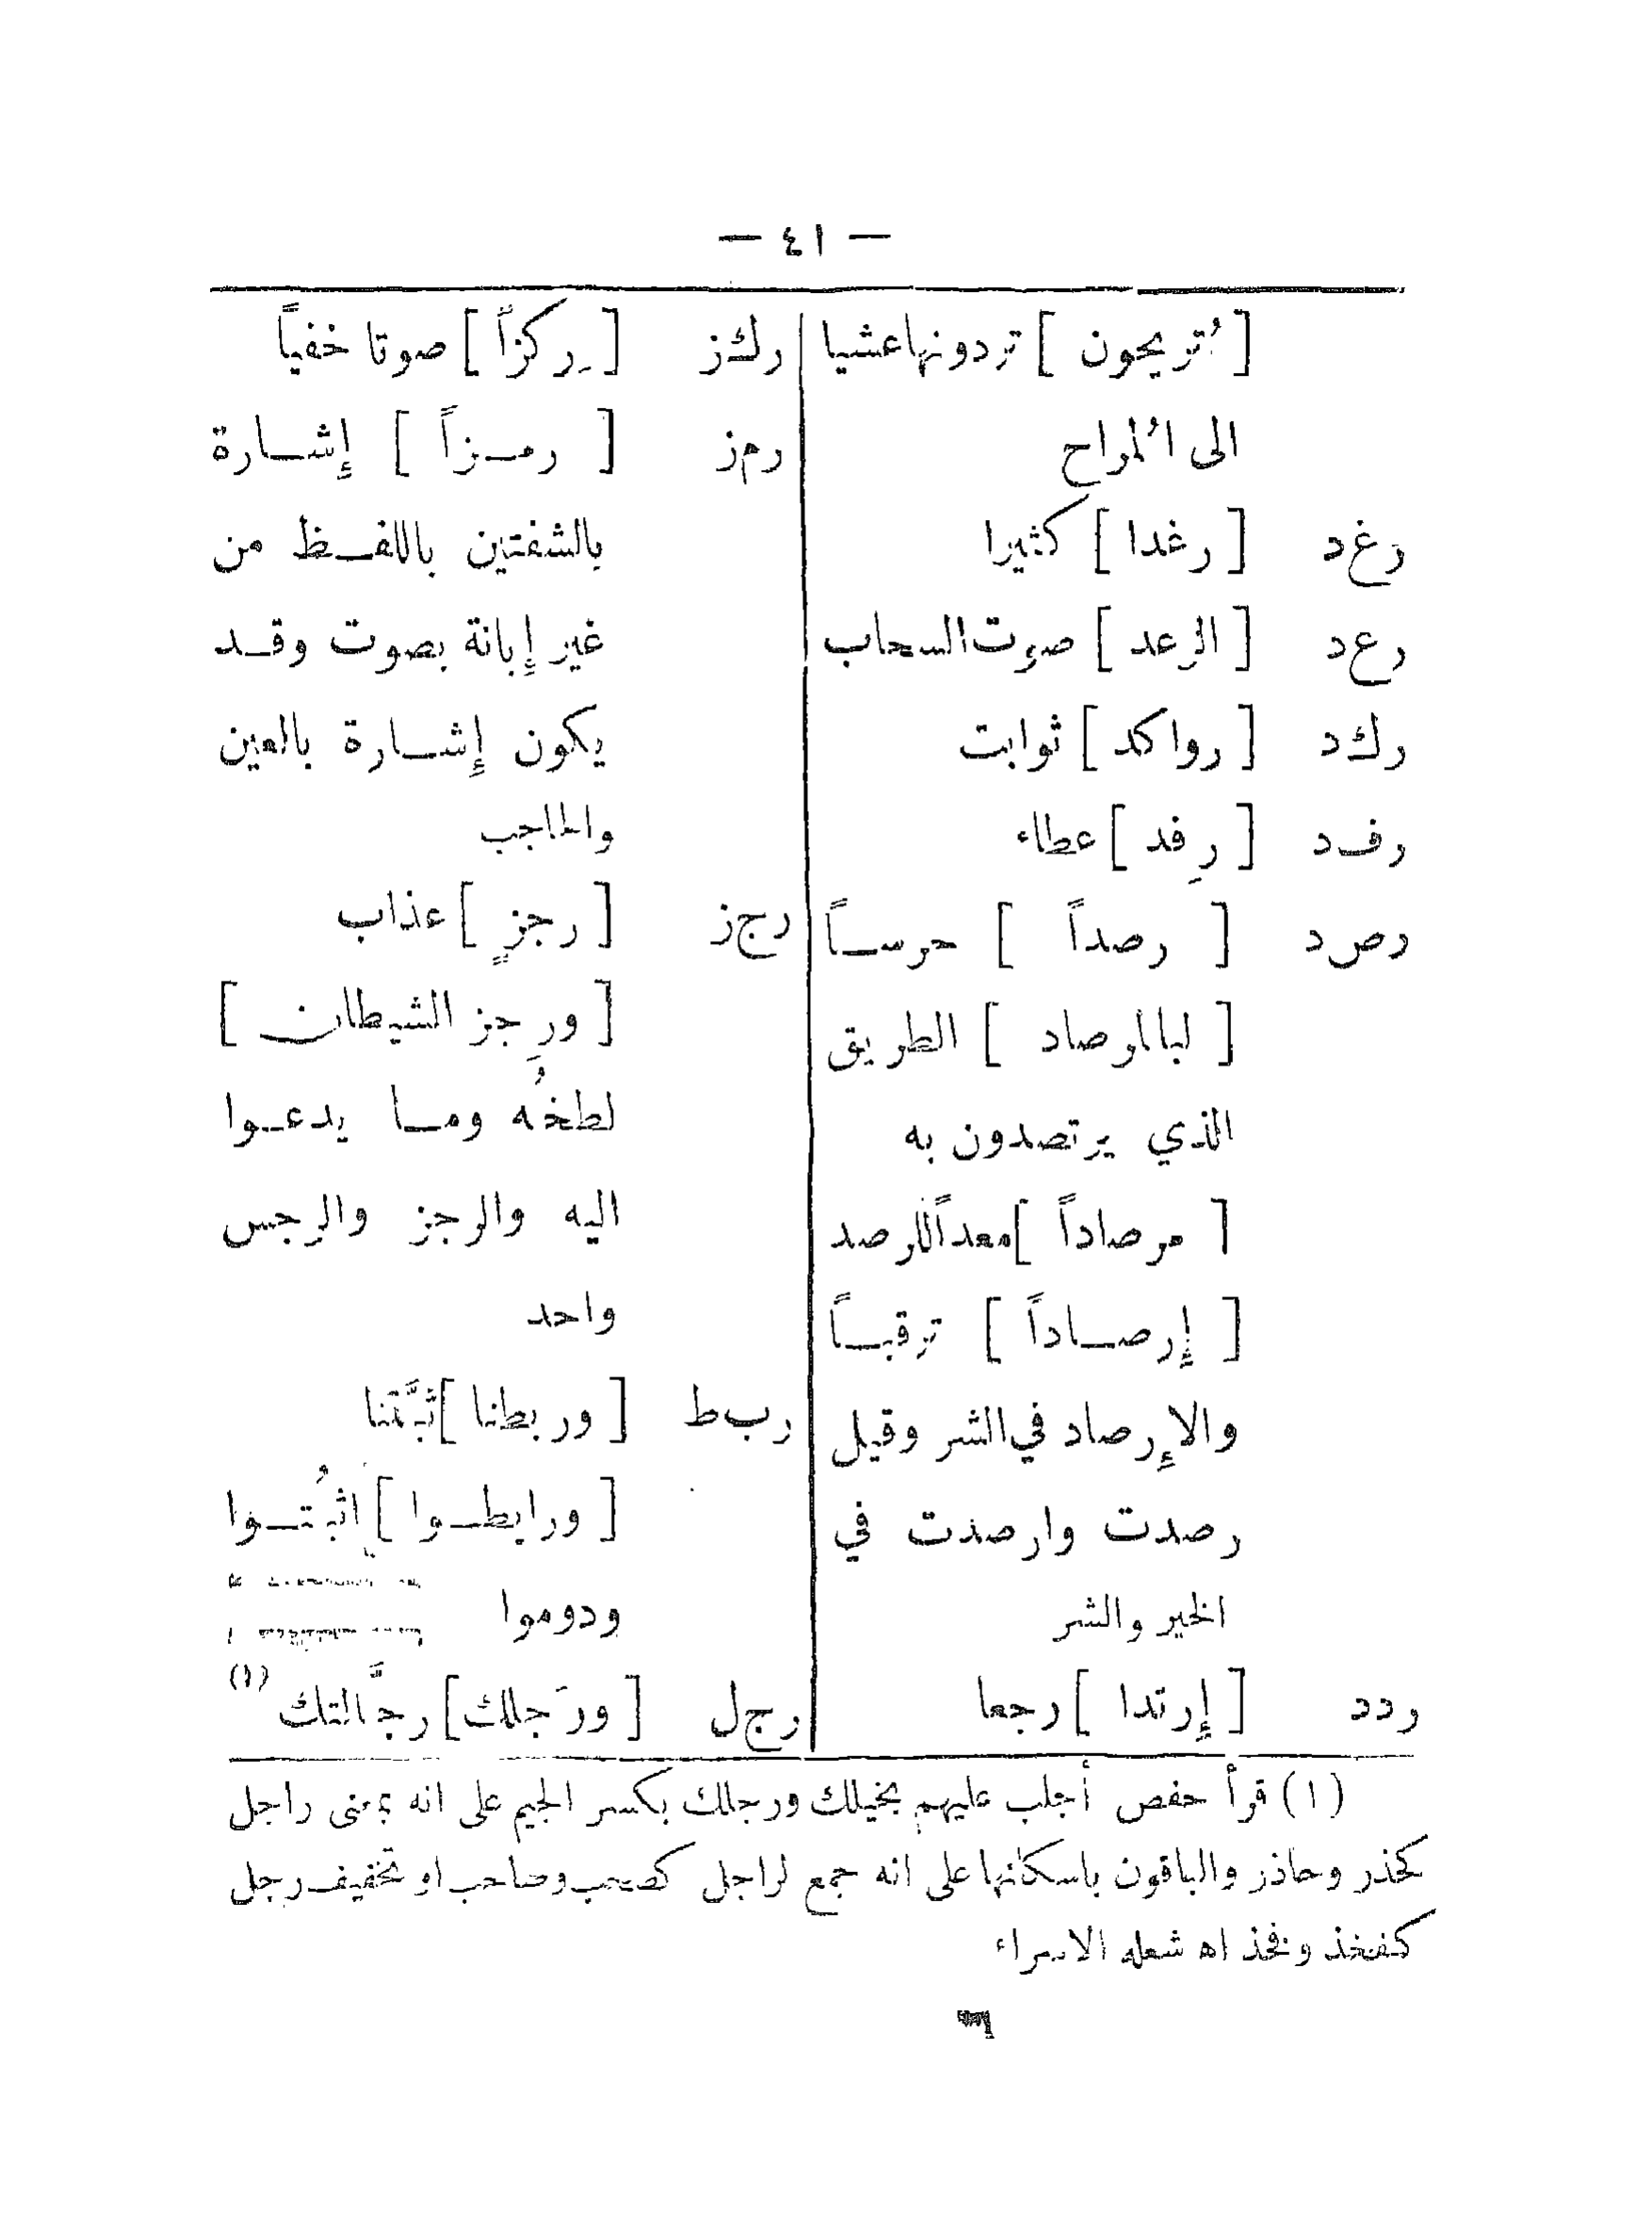 — ٤١ —
[ تُريحون ] تردونها عشيا
الى المُراح
رغ د [ رغدا ] كثيرا
رع د [ الرعد ] صوت السحاب
رك د [ رواكد ] ثوابت
رف د [ رِفد ] عطاء
رص د [ رصداً ] حرســاً
[ لبالمرصاد ] الطريق
الذي يرتصدون به
[ مرصاداً ] معداً للرصد
[ إرصــاداً ] ترقبــاً
والإرصاد في الشر وقيل
رصدت وارصدت في
الخير والشر
ردد [ إرتدا ] رجعا
رك ز [ رِكزاً ] صوتا خفياً
رم ز [ رمــزاً ] إشــارة
بالشفتين باللفــظ من
غير إبانة بصوت وقــد
يكون إشــارة بالعين
والحاجب
رج ز [ رجزٍ ] عذاب
[ ورِجز الشيطان ]
لطخُه ومــا يدعــوا
اليه والرجز والرجس
واحد
رب ط [ وربطنا ] ثبَّتنا
[ ورابطــوا ] اثبُتــوا
ودوموا
رج ل [ ورَجلك ] رجَّالتك (١)
(١) قرأ حفص أجلب عليهم بخيلك ورجلك بكسر الجيم على انه بمعنى راجل
كحذر وحاذر والباقون باسكانها على انه جمع لراجل كصحب وصاحب او تخفيف رجل
كفخذ وفخذ اه شعله الاسراء